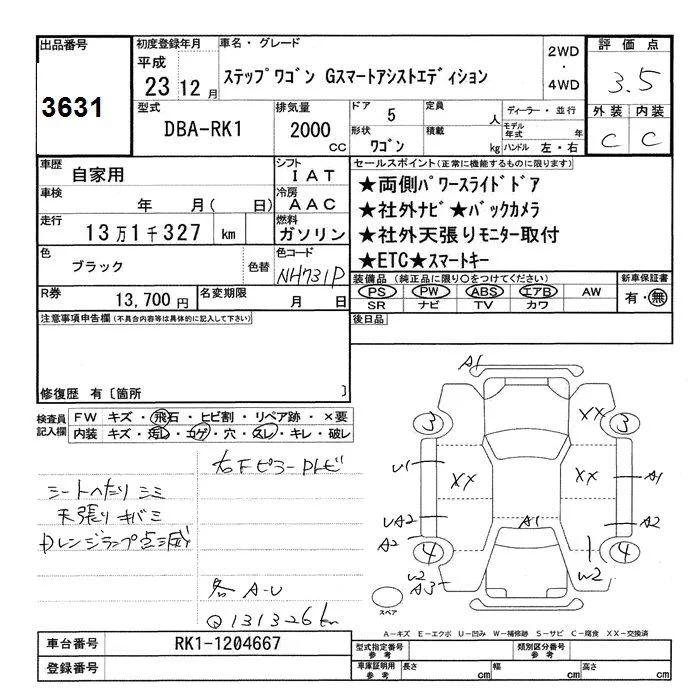 出品番号
3631
初度登録年月
平成
23 12 月
車名・グレード
ステップワゴン Gスマートアシストエディション
2WD
・
4WD
評価点
3.5
型式
DBA-RK1
排気量
2000
cc
ドア 5
形状
ワゴン
定員
人
積載
kg
ディーラー・並行
モデル
年式
年
ハンドル 左・右
外装 内装
C C
車歴
自家用
シフト
IAT
車検
年 月( 日)
冷房
AAC
走行
13万1千327 km
燃料
ガソリン
色
ブラック
色替
色コード
NH731P
R券
13,700円
名変期限
月 日
セールスポイント(正常に機能するものに限ります)
★両側パワースライドドア
★社外ナビ★バックカメラ
★社外天張りモニター取付
★ETC★スマートキー
装備品 (純正品に限り○をつけてください)
PS PW ABS エアB AW
SR ナビ TV カワ
新車保証書
有・無
後日品
注意事項申告欄(不具合内容等は具体的に記入して下さい)
修復歴 有〔箇所 〕
検査員
記入欄
FW キズ・飛石・ヒビ割・リペア跡・×要
内装 キズ・汚レ・コゲ・穴・スレ・キレ・破レ
シートへたり シミ
天張り キバミ
右Fピラー
各 A-U
131326
A1
3
XX
3
U1
XX
XX
A1
UA2
A1
A2
A2
4
4
W2
A3
W2
スペア
A-キズ E-エクボ U-凹み W-補修跡 S-サビ C-腐食 XX-交換済
車台番号
RK1-1204667
登録番号
型式指定番号
参考
類別区分番号
参考
車庫証明用
参考
長さ cm
幅 cm
高さ cm